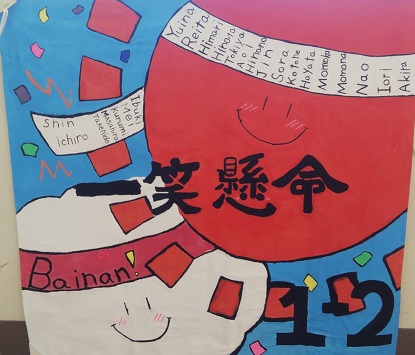 Yuina
Reita
Himari
Hinata
Tokiya
Aoi
Hinano
Jin
Sora
Kotaro
Hayata
Momoka
Momona
Nao
Iori
Akira
Shin
ichiro
Takehide
Masahiro
Kurumi
Mei
Ibuki
一笑懸命
Bainan!
1-2